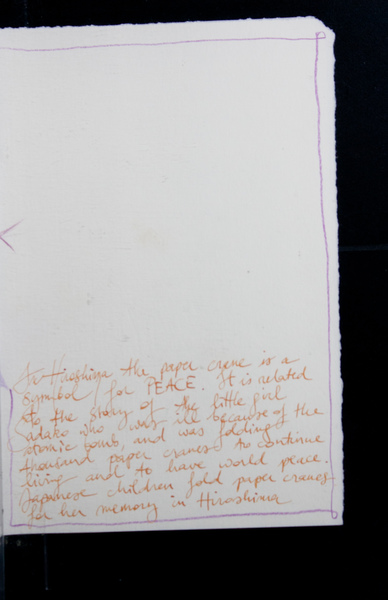 In Hiroshima the paper crene is a
symbol for PEACE. It is related
to the story of the little girl
Sadako who was ill because of the
atomic bomb, and was folding
thousand paper cranes to continue
living and to have world peace.
Japanese children fold paper cranes
for her memory in Hiroshima